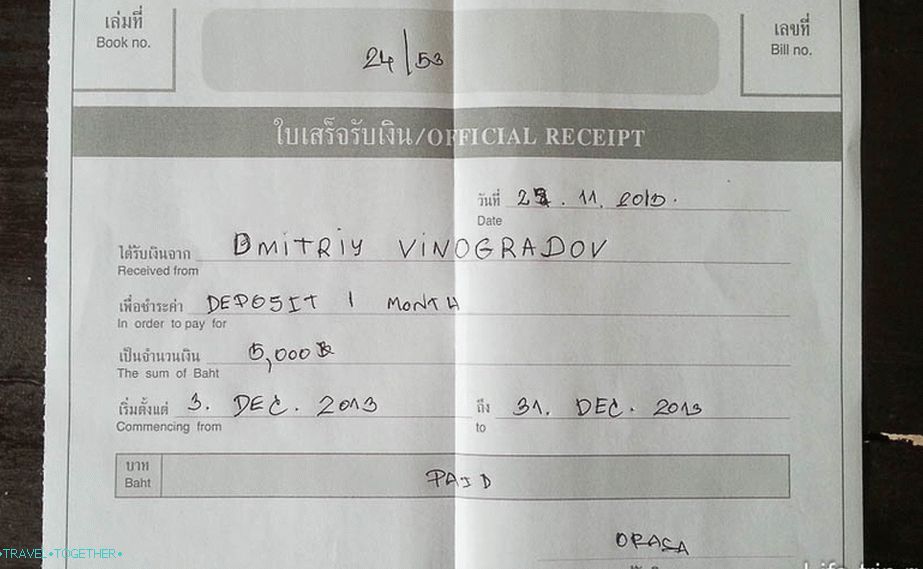 เล่มที่ เลขที่
Book no. Bill no.
24/53
ใบเสร็จรับเงิน/OFFICIAL RECEIPT
วันที่ . 11. 2013.
Date
ได้รับเงินจาก DMITRIY VINOGRADOV
Received from
เพื่อชำระค่า DEPOSIT 1 MONTH
In order to pay for
เป็นจำนวนเงิน 5,000 ฿
The sum of Baht
เริ่มตั้งแต่ 3. DEC. 2013 ถึง 31. DEC. 2013
Commencing from to
บาท PAID
Baht
ORASA
•TRAVEL•TOGETHER•